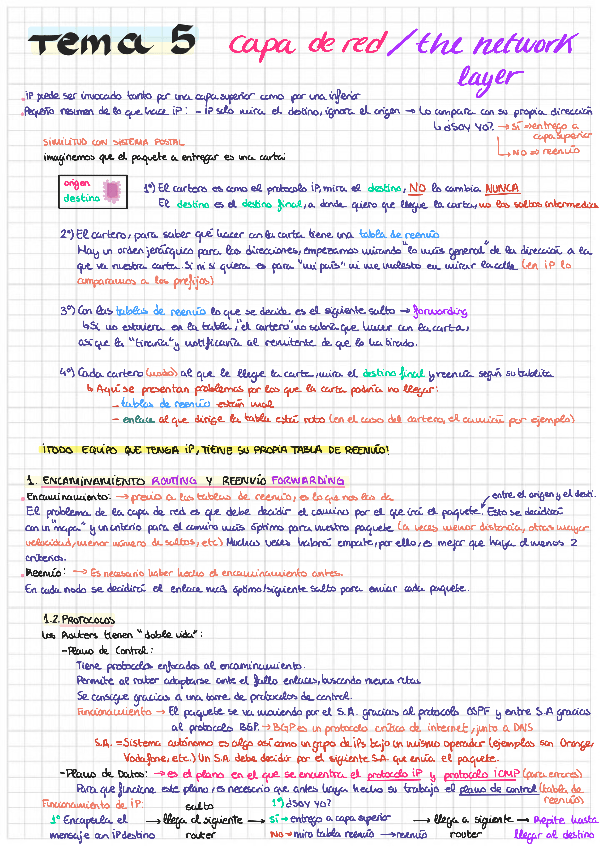 Tema 5 capa de red / the network
layer
IP puede ser invocado tanto por una capa superior como por una inferior
Pequeño resumen de lo que hace IP: - IP solo mira el destino, ignora el origen → lo compara con su propia dirección
↳ ¿Soy yo? → Sí → entrego a
capa superior
↳ NO → reenvío
SIMILITUD CON SISTEMA POSTAL
imaginemos que el paquete a entregar es una carta:
origen
destino
1º) El cartero es como el protocolo IP, mira el destino, NO lo cambia NUNCA
El destino es el destino final, a donde quiero que llegue la carta, no los saltos intermedios
2º) El cartero, para saber qué hacer con la carta tiene una tabla de reenvío
Hay un orden jerárquico para las direcciones, empezamos mirando "lo más general" de la dirección a la
que va nuestra carta. Si ni si quiera es para "mi país" ni me molesto en mirar la calle (en IP lo
comparamos a los prefijos)
3º) Con las tablas de reenvío lo que se decide es el siguiente salto → forwarding
↳ Si no estuviera en la tabla, "el cartero" no sabría que hacer con la carta,
así que la "tiraría" y notificaría al remitente de que lo ha tirado.
4º) Cada cartero (nodo) al que le llegue la carta, mira el destino final y reenvía según su tablita
↳ Aquí se presentan problemas por los que la carta podría no llegar:
- tablas de reenvío están mal
- enlace al que dirige la tabla está roto (en el caso del cartero, el camión por ejemplo)
¡TODO EQUIPO QUE TENGA IP, TIENE SU PROPIA TABLA DE REENVÍO!
1. ENCAMINAMIENTO ROUTING Y REENVÍO FORWARDING
Encaminamiento: → previo a las tablas de reenvío, es lo que nos las da
entre el origen y el desti.
El problema de la capa de red es que debe decidir el camino por el que irá el paquete. Esto se decidirá
con un "mapa" y un criterio para el camino más óptimo para nuestro paquete (a veces menor distancia, otras mayor
velocidad, menor número de saltos, etc) Muchas veces habrá empate, por ello, es mejor que haya al menos 2
criterios.
Reenvío: → Es necesario haber hecho el encaminamiento antes.
En cada nodo se decidirá el enlace más óptimo/siguiente salto para enviar cada paquete.
1.2. PROTOCOLOS
Los Routers tienen "doble vida":
-Plano de Control:
Tiene protocolos enfocados al encaminamiento.
Permite al router adaptarse ante el fallo enlaces, buscando nuevas rutas
Se consigue gracias a una torre de protocolos de control.
Funcionamiento → El paquete se va moviendo por el S.A. gracias al protocolo OSPF y entre S.A gracias
al protocolo BGP. → BGP es un protocolo crítico de internet, junto a DNS
S.A. = Sistema autónomo es algo así como un grupo de IPs bajo un mismo operador (ejemplos son Orange,
Vodafone, etc.) Un S.A. debe decidir por el siguiente S.A. que envía el paquete.
-Plano de Datos: → es el plano en el que se encuentra el protocolo IP y protocolo ICMP (para errores)
Para que funcione este plano, es necesario que antes haya hecho su trabajo el plano de control (tabla de
reenvío)
Funcionamiento de IP: salto 1º) ¿Soy yo?
1º Encapsula el → llega al siguiente → Sí → entrego a capa superior → llega a siguiente → Repite hasta
mensaje con IP destino router NO → miro tabla reenvío → reenvío router llegar al destino